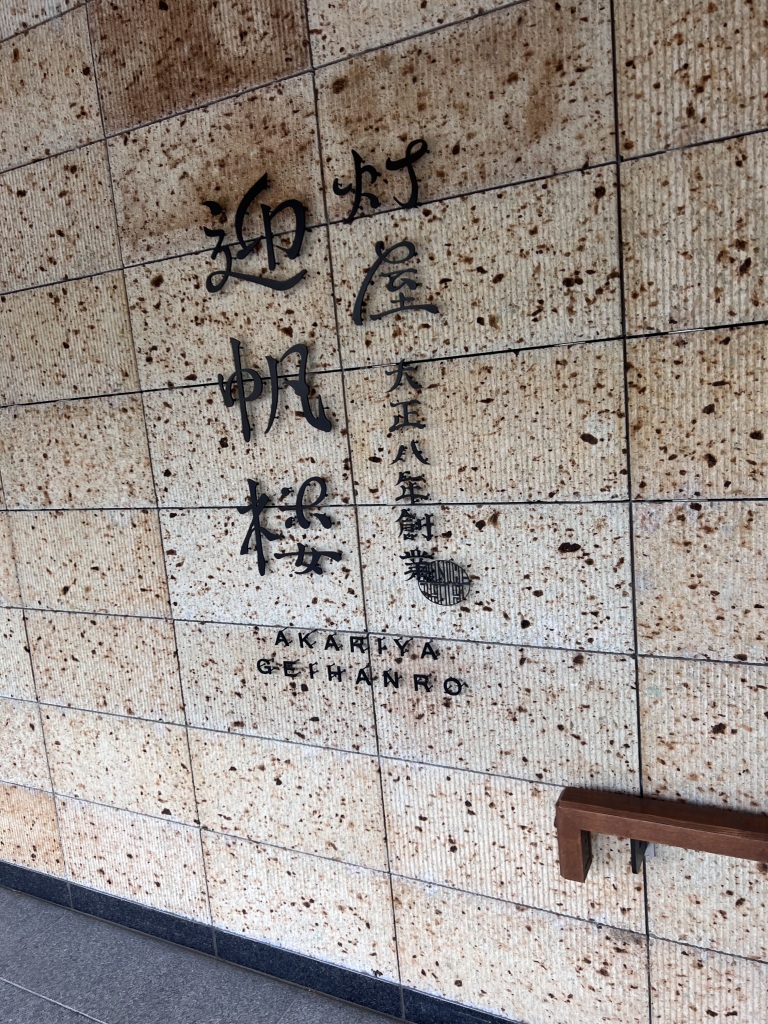 灯屋
大正八年創業
迎帆楼
AKARIYA
GEIHANRO